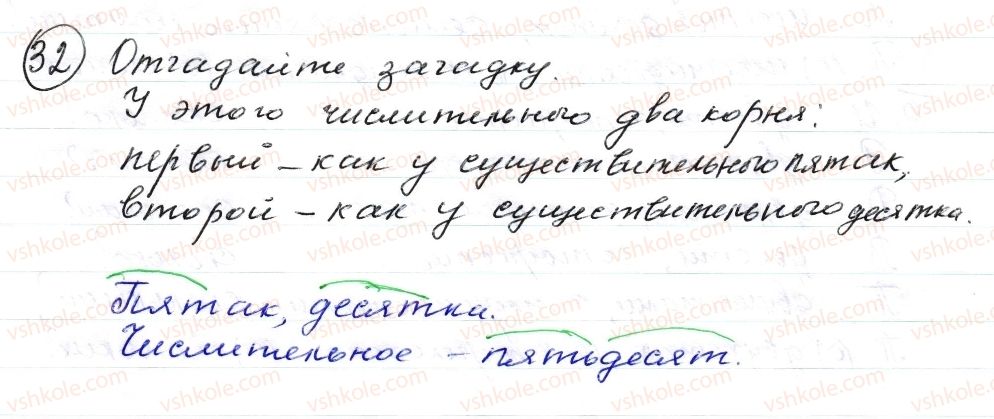 32 Отгадайте загадку.
У этого числительного два корня:
первый – как у существительного пятак,
второй – как у существительного десятка.
Пятак, десятка.
Числительное – пятьдесят.